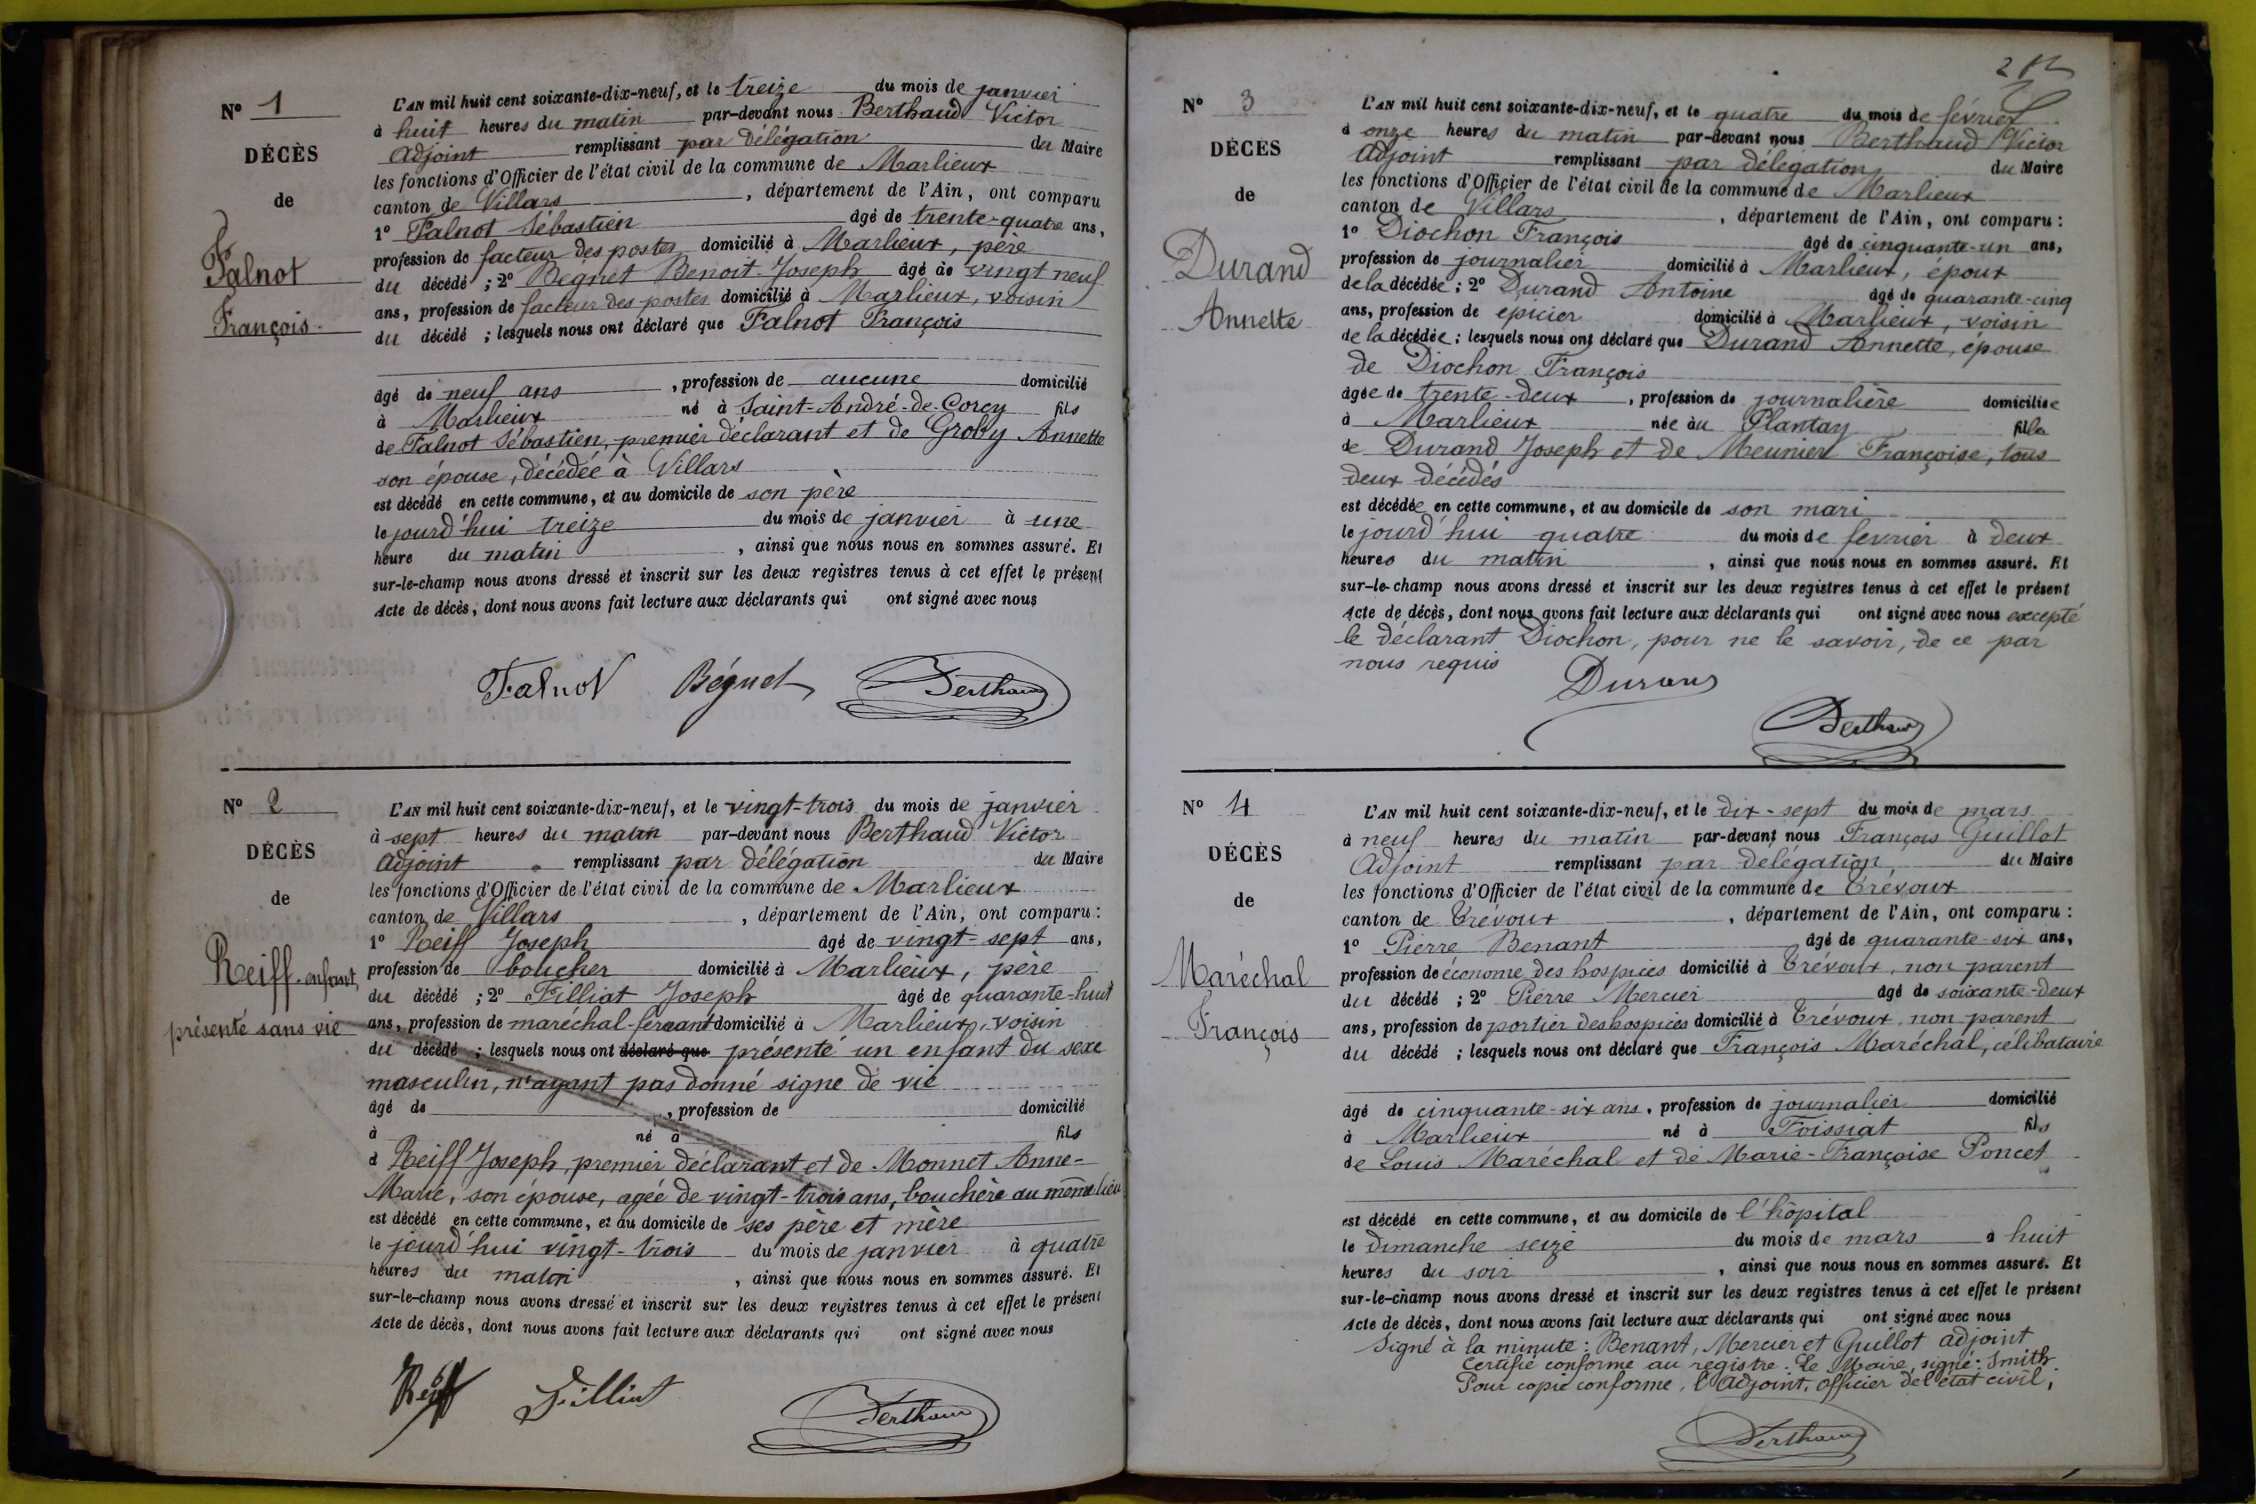 Nº 1
DÉCÈS
de
Falnot
François
L'AN mil huit cent soixante-dix-neuf, et le treize du mois de janvier
à huit heures du matin par-devant nous Berthaud Victor
adjoint remplissant par délégation du Maire
les fonctions d'Officier de l'état civil de la commune de Marlieux
canton de Villars, département de l'Ain, ont comparu
1º Falnot Sébastien âgé de trente-quatre ans,
profession de facteur des postes domicilié à Marlieux, père
du décédé ; 2º Bégnet Benoit-Joseph âgé de vingt neuf
ans, profession de facteur des postes domicilié à Marlieux, voisin
du décédé ; lesquels nous ont déclaré que Falnot François
âgé de neuf ans, profession de aucune domicilié
à Marlieux né à Saint-André-de-Corcy fils
de Falnot Sébastien, premier déclarant et de Groby Annette
son épouse, décédée à Villars
est décédé en cette commune, et au domicile de son père
le jourd'hui treize du mois de janvier à une
heure du matin, ainsi que nous nous en sommes assuré. Et
sur-le-champ nous avons dressé et inscrit sur les deux registres tenus à cet effet le présent
Acte de décès, dont nous avons fait lecture aux déclarants qui ont signé avec nous
Falnot Bégnet Berthaud
Nº 2
DÉCÈS
de
Reiff enfant
présenté sans vie
L'AN mil huit cent soixante-dix-neuf, et le vingt-trois du mois de janvier
à sept heures du matin par-devant nous Berthaud Victor
adjoint remplissant par délégation du Maire
les fonctions d'Officier de l'état civil de la commune de Marlieux
canton de Villars, département de l'Ain, ont comparu :
1º Reiff Joseph âgé de vingt-sept ans,
profession de boucher domicilié à Marlieux, père
du décédé ; 2º Filliat Joseph âgé de quarante-huit
ans, profession de maréchal-ferrant domicilié à Marlieux, voisin
du décédé ; lesquels nous ont déclaré que présenté un enfant du sexe
masculin, n'ayant pas donné signe de vie
âgé de , profession de domicilié
à né à fils
d Reiff Joseph, premier déclarant et de Monnet Anne-
Marie, son épouse, agée de vingt-trois ans, bouchère au même lieu
est décédé en cette commune, et au domicile de ses père et mère
le jourd'hui vingt-trois du mois de janvier à quatre
heures du matin, ainsi que nous nous en sommes assuré. Et
sur-le-champ nous avons dressé et inscrit sur les deux registres tenus à cet effet le présent
Acte de décès, dont nous avons fait lecture aux déclarants qui ont signé avec nous
Reiff Filliat Berthaud
Nº 3
DÉCÈS
de
Durand
Annette
L'AN mil huit cent soixante-dix-neuf, et le quatre du mois de février
à onze heures du matin par-devant nous Berthaud Victor
adjoint remplissant par délégation du Maire
les fonctions d'Officier de l'état civil de la commune de Marlieux
canton de Villars, département de l'Ain, ont comparu :
1º Diochon François âgé de cinquante-un ans,
profession de journalier domicilié à Marlieux, époux
de la décédée ; 2º Durand Antoine âgé de quarante-cinq
ans, profession de epicier domicilié à Marlieux, voisin
de la décédée ; lesquels nous ont déclaré que Durand Annette, épouse
de Diochon François
âgée de trente-deux, profession de journalière domiciliée
à Marlieux née au Plantay fille
de Durand Joseph et de Meunier Françoise, tous
deux décédés
est décédée en cette commune, et au domicile de son mari
le jourd'hui quatre du mois de fevrier à deux
heures du matin, ainsi que nous nous en sommes assuré. Et
sur-le-champ nous avons dressé et inscrit sur les deux registres tenus à cet effet le présent
Acte de décès, dont nous avons fait lecture aux déclarants qui ont signé avec nous excepté
le déclarant Diochon, pour ne le savoir, de ce par
nous requis
Durand
Berthaud
Nº 4
DÉCÈS
de
Maréchal
François
L'AN mil huit cent soixante-dix-neuf, et le dix-sept du mois de mars
à neuf heures du matin par-devant nous François Guillot
Adjoint remplissant par delégation du Maire
les fonctions d'Officier de l'état civil de la commune de Trévoux
canton de Trévoux, département de l'Ain, ont comparu :
1º Pierre Benant âgé de quarante-six ans,
profession de économe des hospices domicilié à Trévoux, non parent
du décédé ; 2º Pierre Mercier âgé de soixante-deux
ans, profession de portier des hospices domicilié à Trévoux, non parent
du décédé ; lesquels nous ont déclaré que François Maréchal, célibataire
âgé de cinquante-six ans, profession de journalier domicilié
à Marlieux né à Foissiat fils
de Louis Maréchal et de Marie-Françoise Poncet
est décédé en cette commune, et au domicile de l'hôpital
le dimanche seize du mois de mars à huit
heures du soir, ainsi que nous nous en sommes assuré. Et
sur-le-champ nous avons dressé et inscrit sur les deux registres tenus à cet effet le présent
Acte de décès, dont nous avons fait lecture aux déclarants qui ont signé avec nous
Signé à la minute : Benant, Mercier et Guillot adjoint
Certifié conforme au registre : Le Maire, signé : Smith.
Pour copie conforme, l'adjoint, officier de l'état civil,
Berthaud